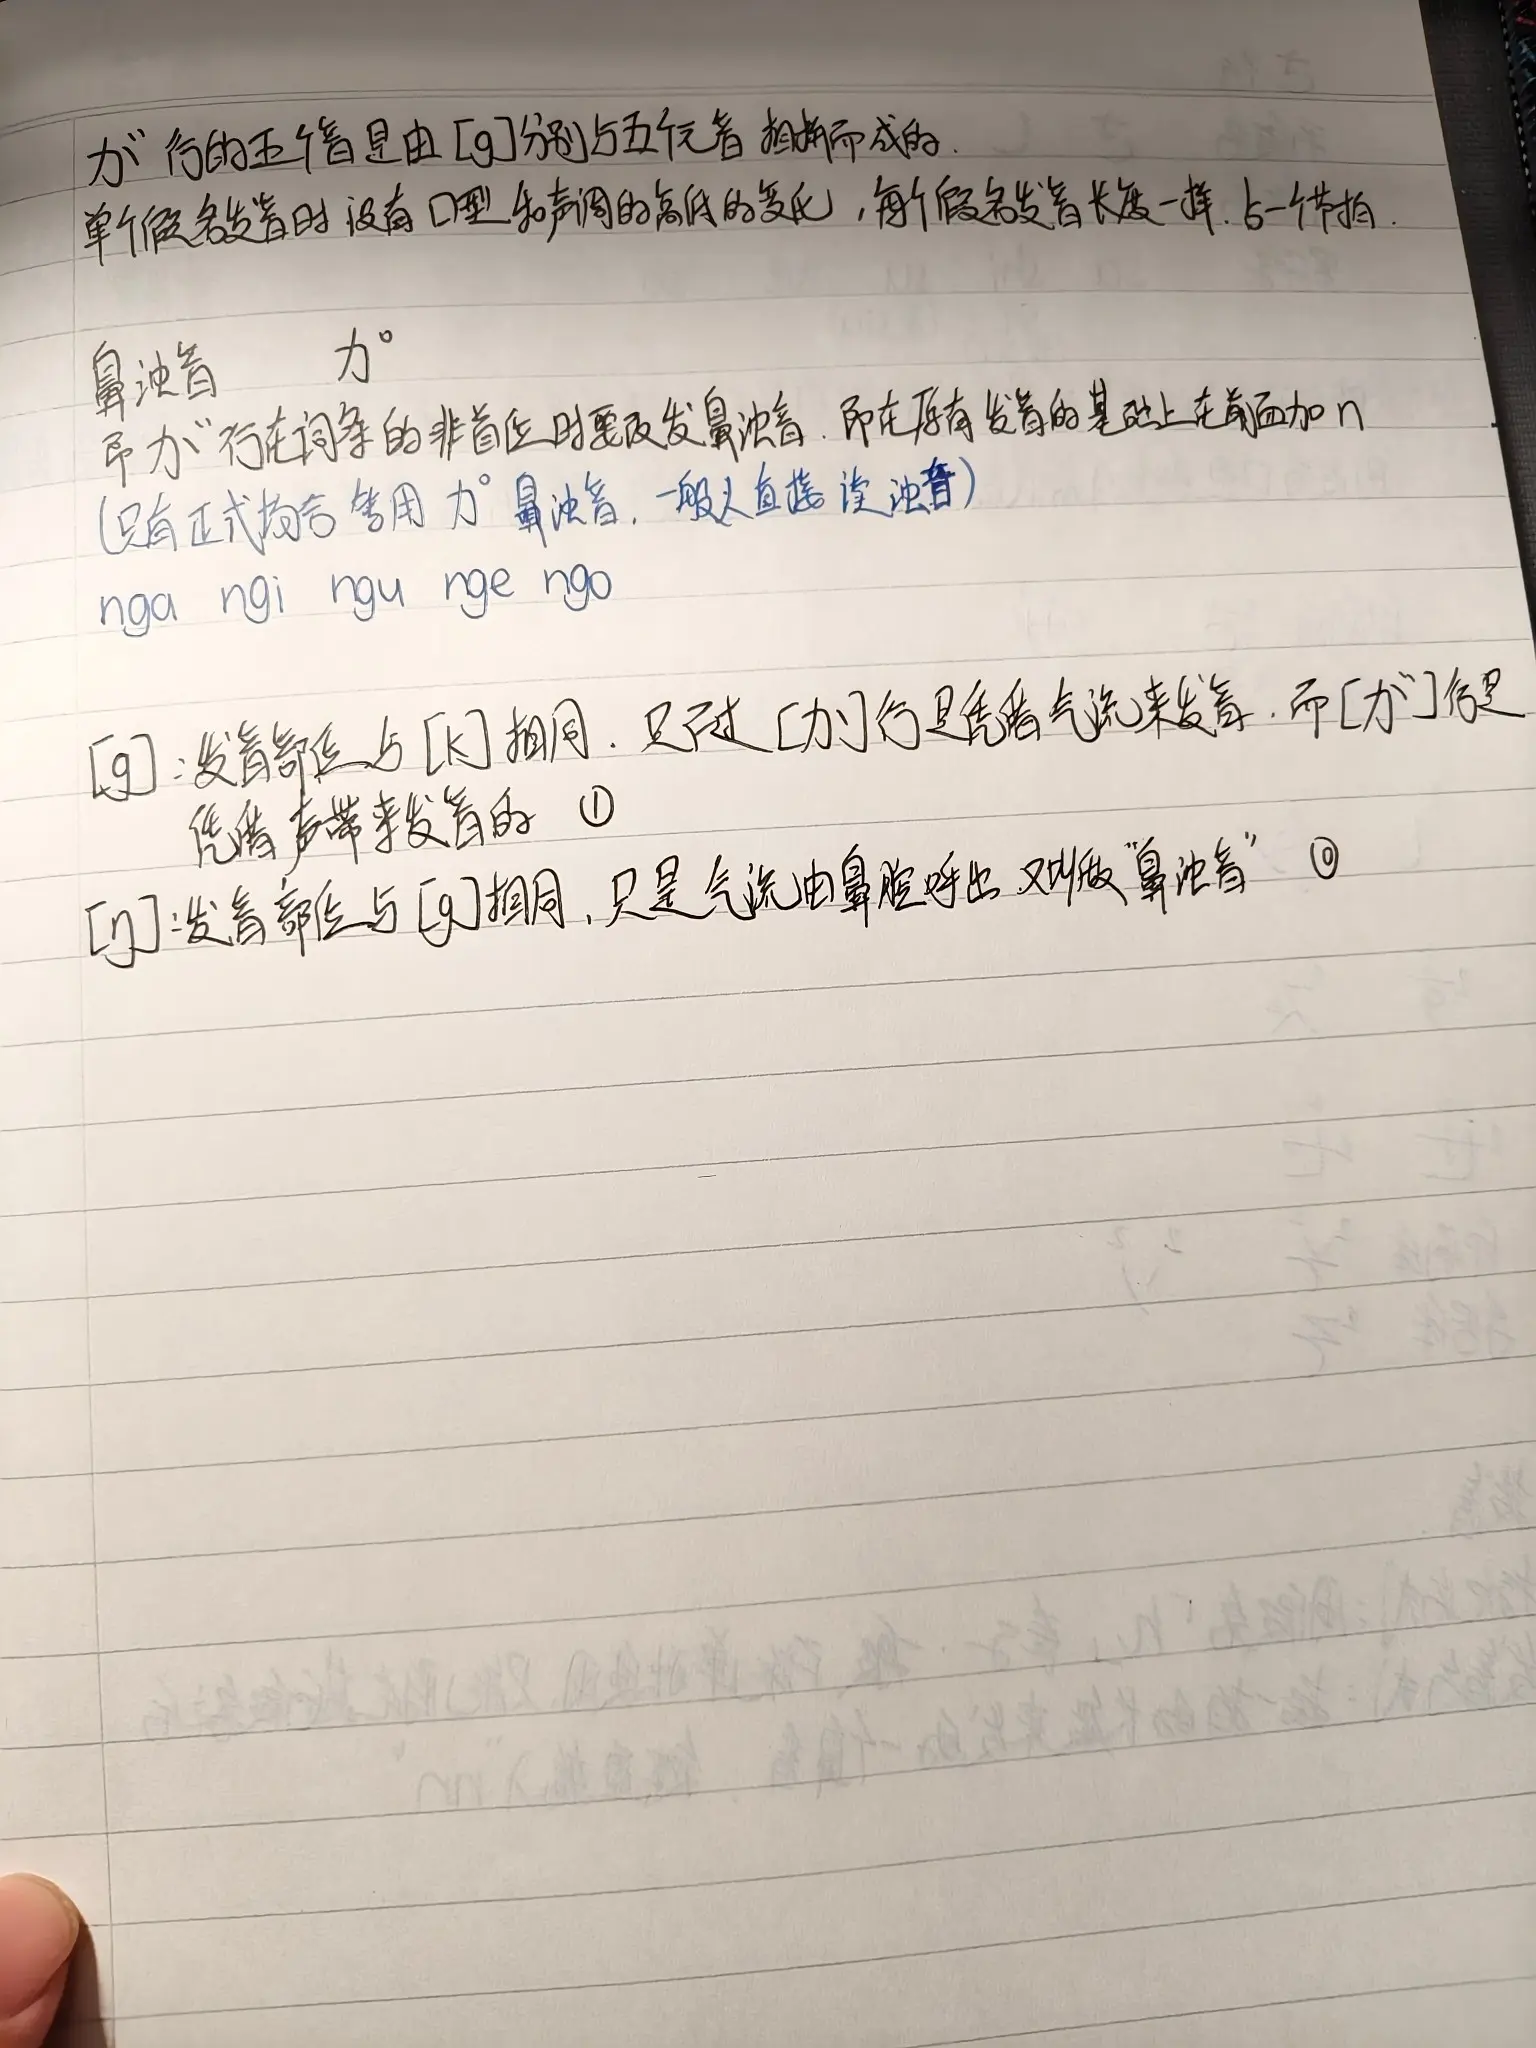 が行的五个音是由[g]分别与五个元音相拼而成的.
单个假名发音时没有口型和声调的高低的变化，每个假名发音长度一样.占一个节拍.
鼻浊音 カ°
即が行在词条的非首位时要改发鼻浊音.即在原有发音的基础上在前面加n
(只有正式场合会用カ°鼻浊音，一般人直接读浊音)
nga ngi ngu nge ngo
[g]:发音部位与[k]相同.只不过[か]行是凭借气流来发音.而[が]行是
凭借声带来发音的 ①
[η]:发音部位与[g]相同，只是气流由鼻腔呼出又叫做“鼻浊音” ⓪